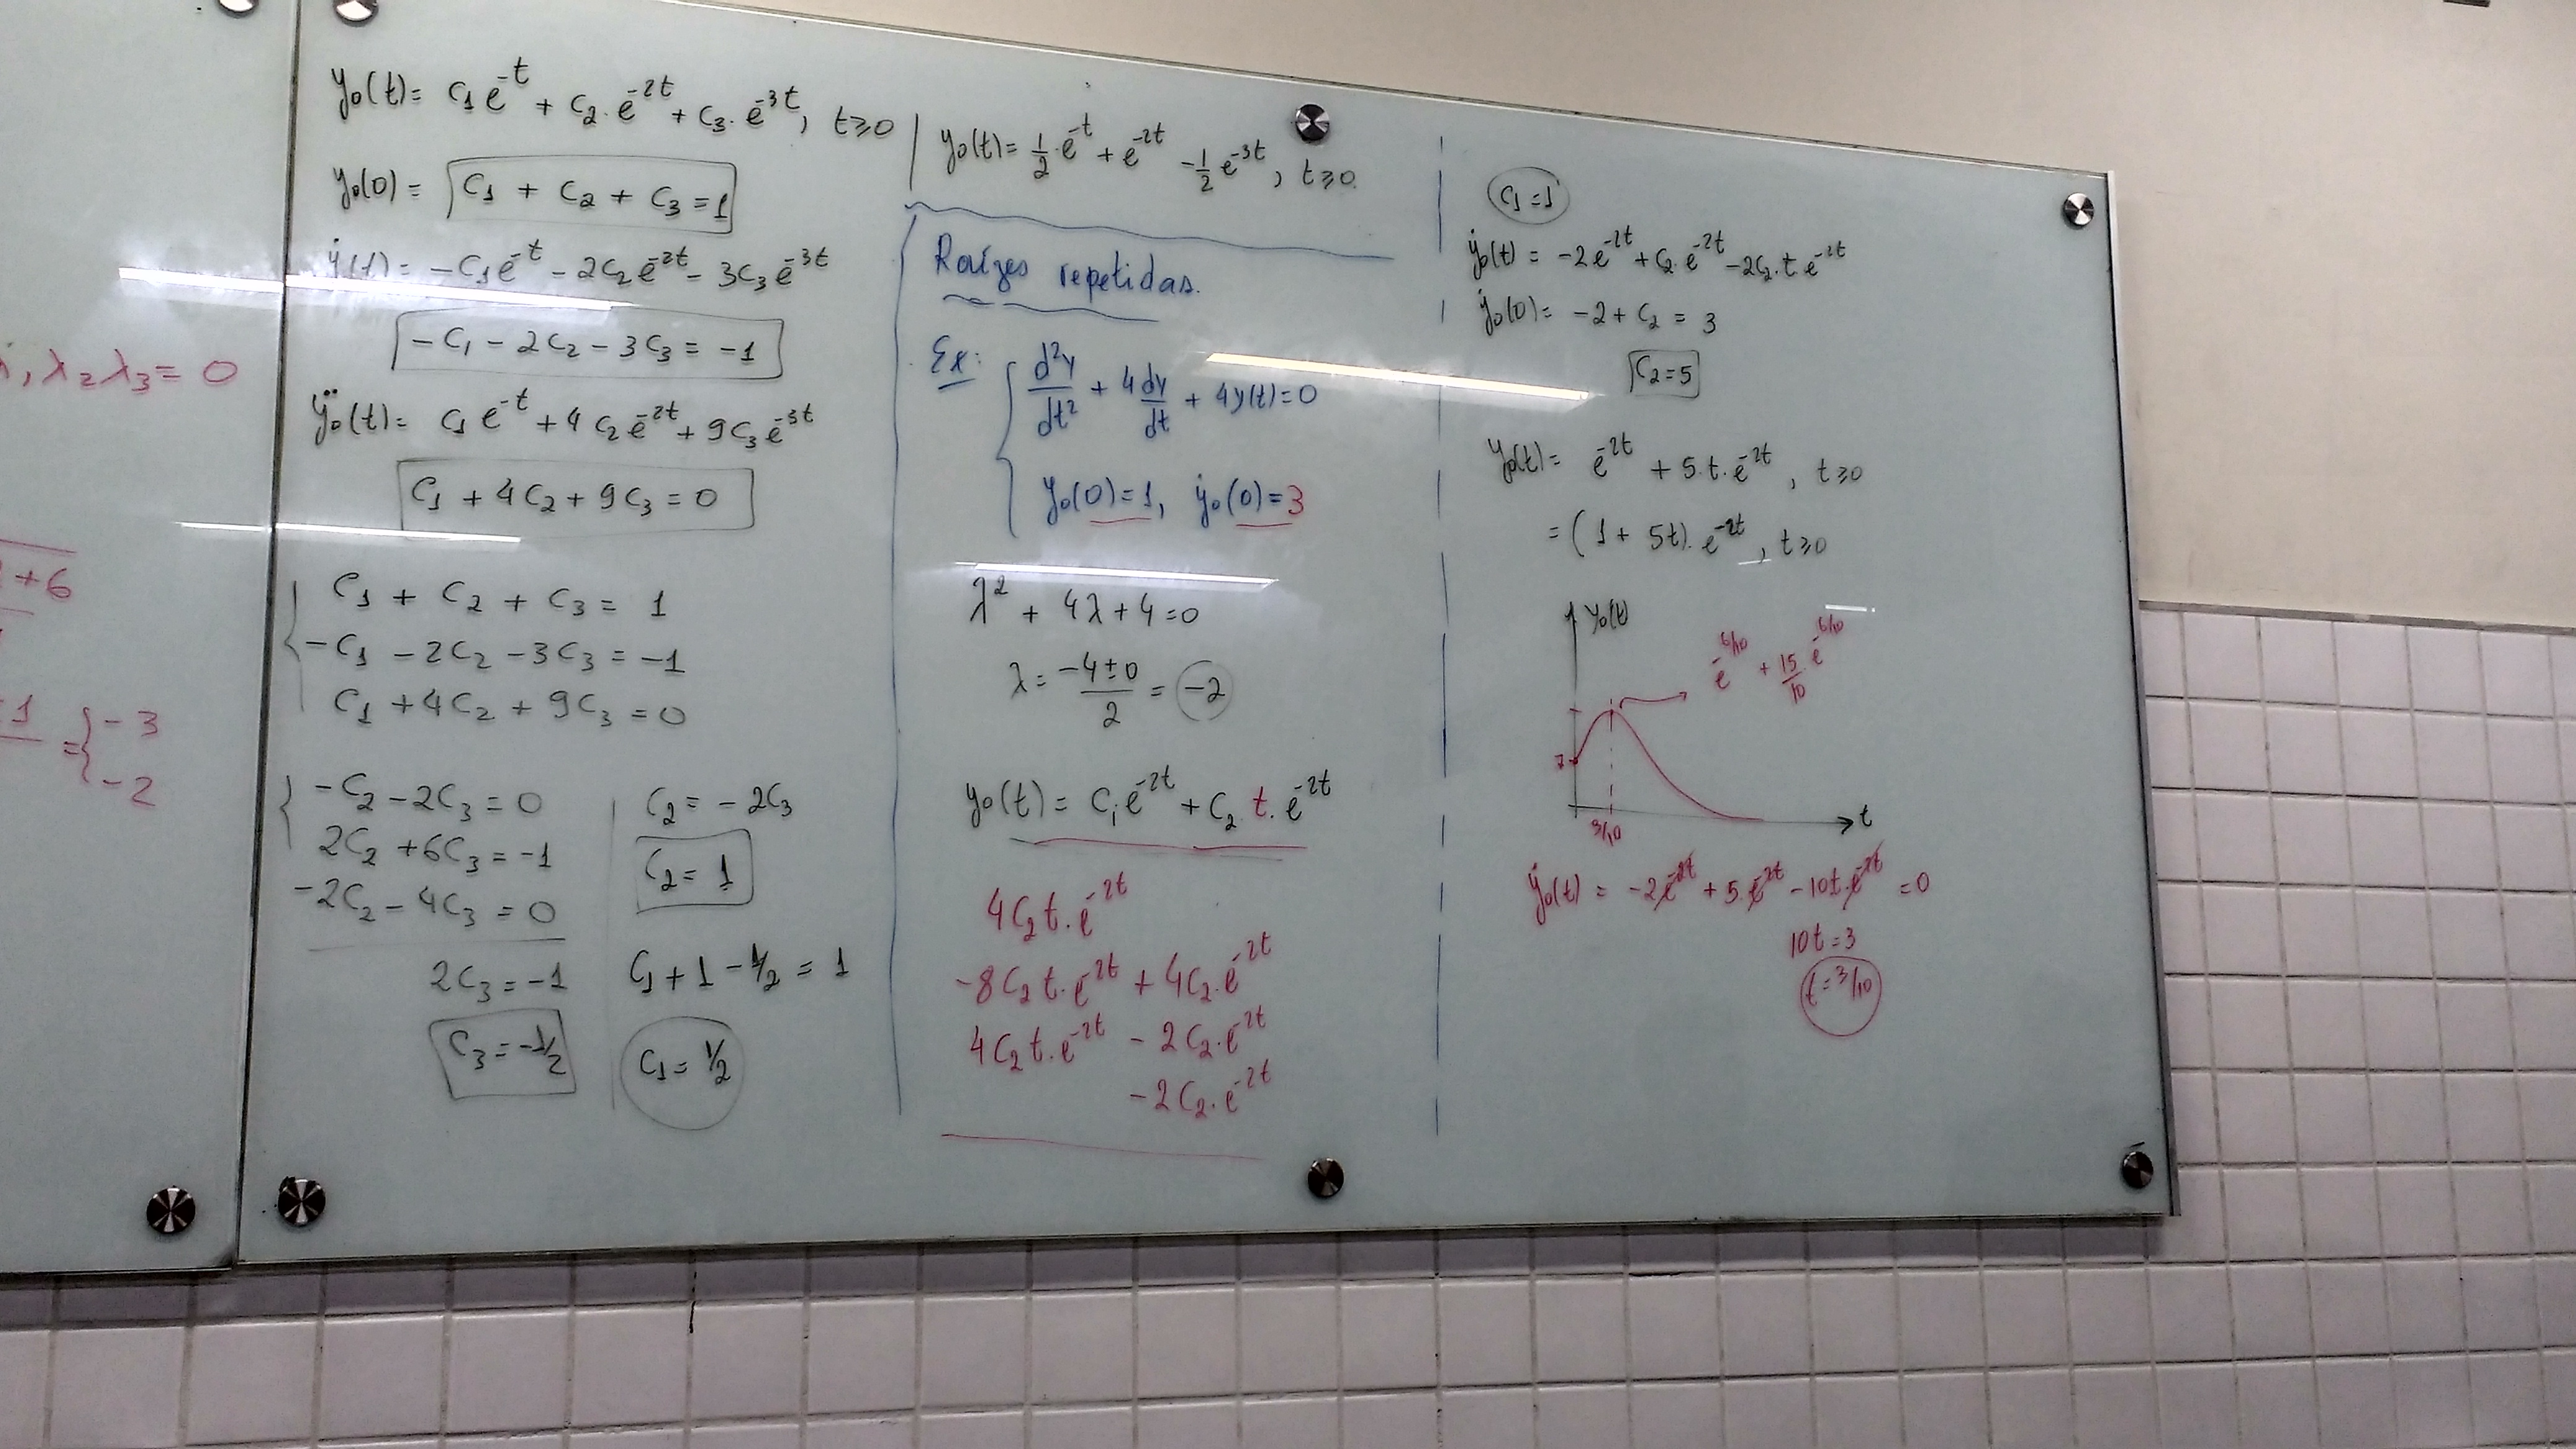 λ₂λ₃ = 0
+6
1 = { -3
-2
y₀(t) = C₁e^{-t} + C₂.e^{-2t} + C₃.e^{-3t}, t≥0
y₀(0) = C₁ + C₂ + C₃ = 1
ẏ(t) = -C₁e^{-t} - 2C₂e^{-2t} - 3C₃e^{-3t}
-C₁ - 2C₂ - 3C₃ = -1
ÿ₀(t) = C₁e^{-t} + 4C₂e^{-2t} + 9C₃e^{-3t}
C₁ + 4C₂ + 9C₃ = 0
C₁ + C₂ + C₃ = 1
-C₁ - 2C₂ - 3C₃ = -1
C₁ + 4C₂ + 9C₃ = 0
-C₂ - 2C₃ = 0
2C₂ + 6C₃ = -1
-2C₂ - 4C₃ = 0
2C₃ = -1
C₃ = -1/2
C₂ = -2C₃
C₂ = 1
C₁ + 1 - 1/2 = 1
C₁ = 1/2
y₀(t) = 1/2.e^{-t} + e^{-2t} - 1/2 e^{-3t}, t≥0.
Raízes repetidas.
Ex: d²y/dt² + 4dy/dt + 4y(t) = 0
y₀(0) = 1, ẏ₀(0) = 3
λ² + 4λ + 4 = 0
λ = (-4±0)/2 = -2
y₀(t) = C₁e^{-2t} + C₂.t.e^{-2t}
4C₂t.e^{-2t}
-8C₂t.e^{-2t} + 4C₂.e^{-2t}
4C₂t.e^{-2t} - 2C₂.e^{-2t}
-2C₂.e^{-2t}
C₁ = 1
ẏ₀(t) = -2e^{-2t} + C₂.e^{-2t} - 2C₂.t.e^{-2t}
ẏ₀(0) = -2 + C₂ = 3
C₂ = 5
y₀(t) = e^{-2t} + 5.t.e^{-2t}, t≥0
= (1 + 5t).e^{-2t}, t≥0
y₀(t)
e^{-6/10} + 15/10 e^{-6/10}
1
3/10
t
ẏ₀(t) = -2e^{-2t} + 5.e^{-2t} - 10t.e^{-2t} = 0
10t = 3
t = 3/10